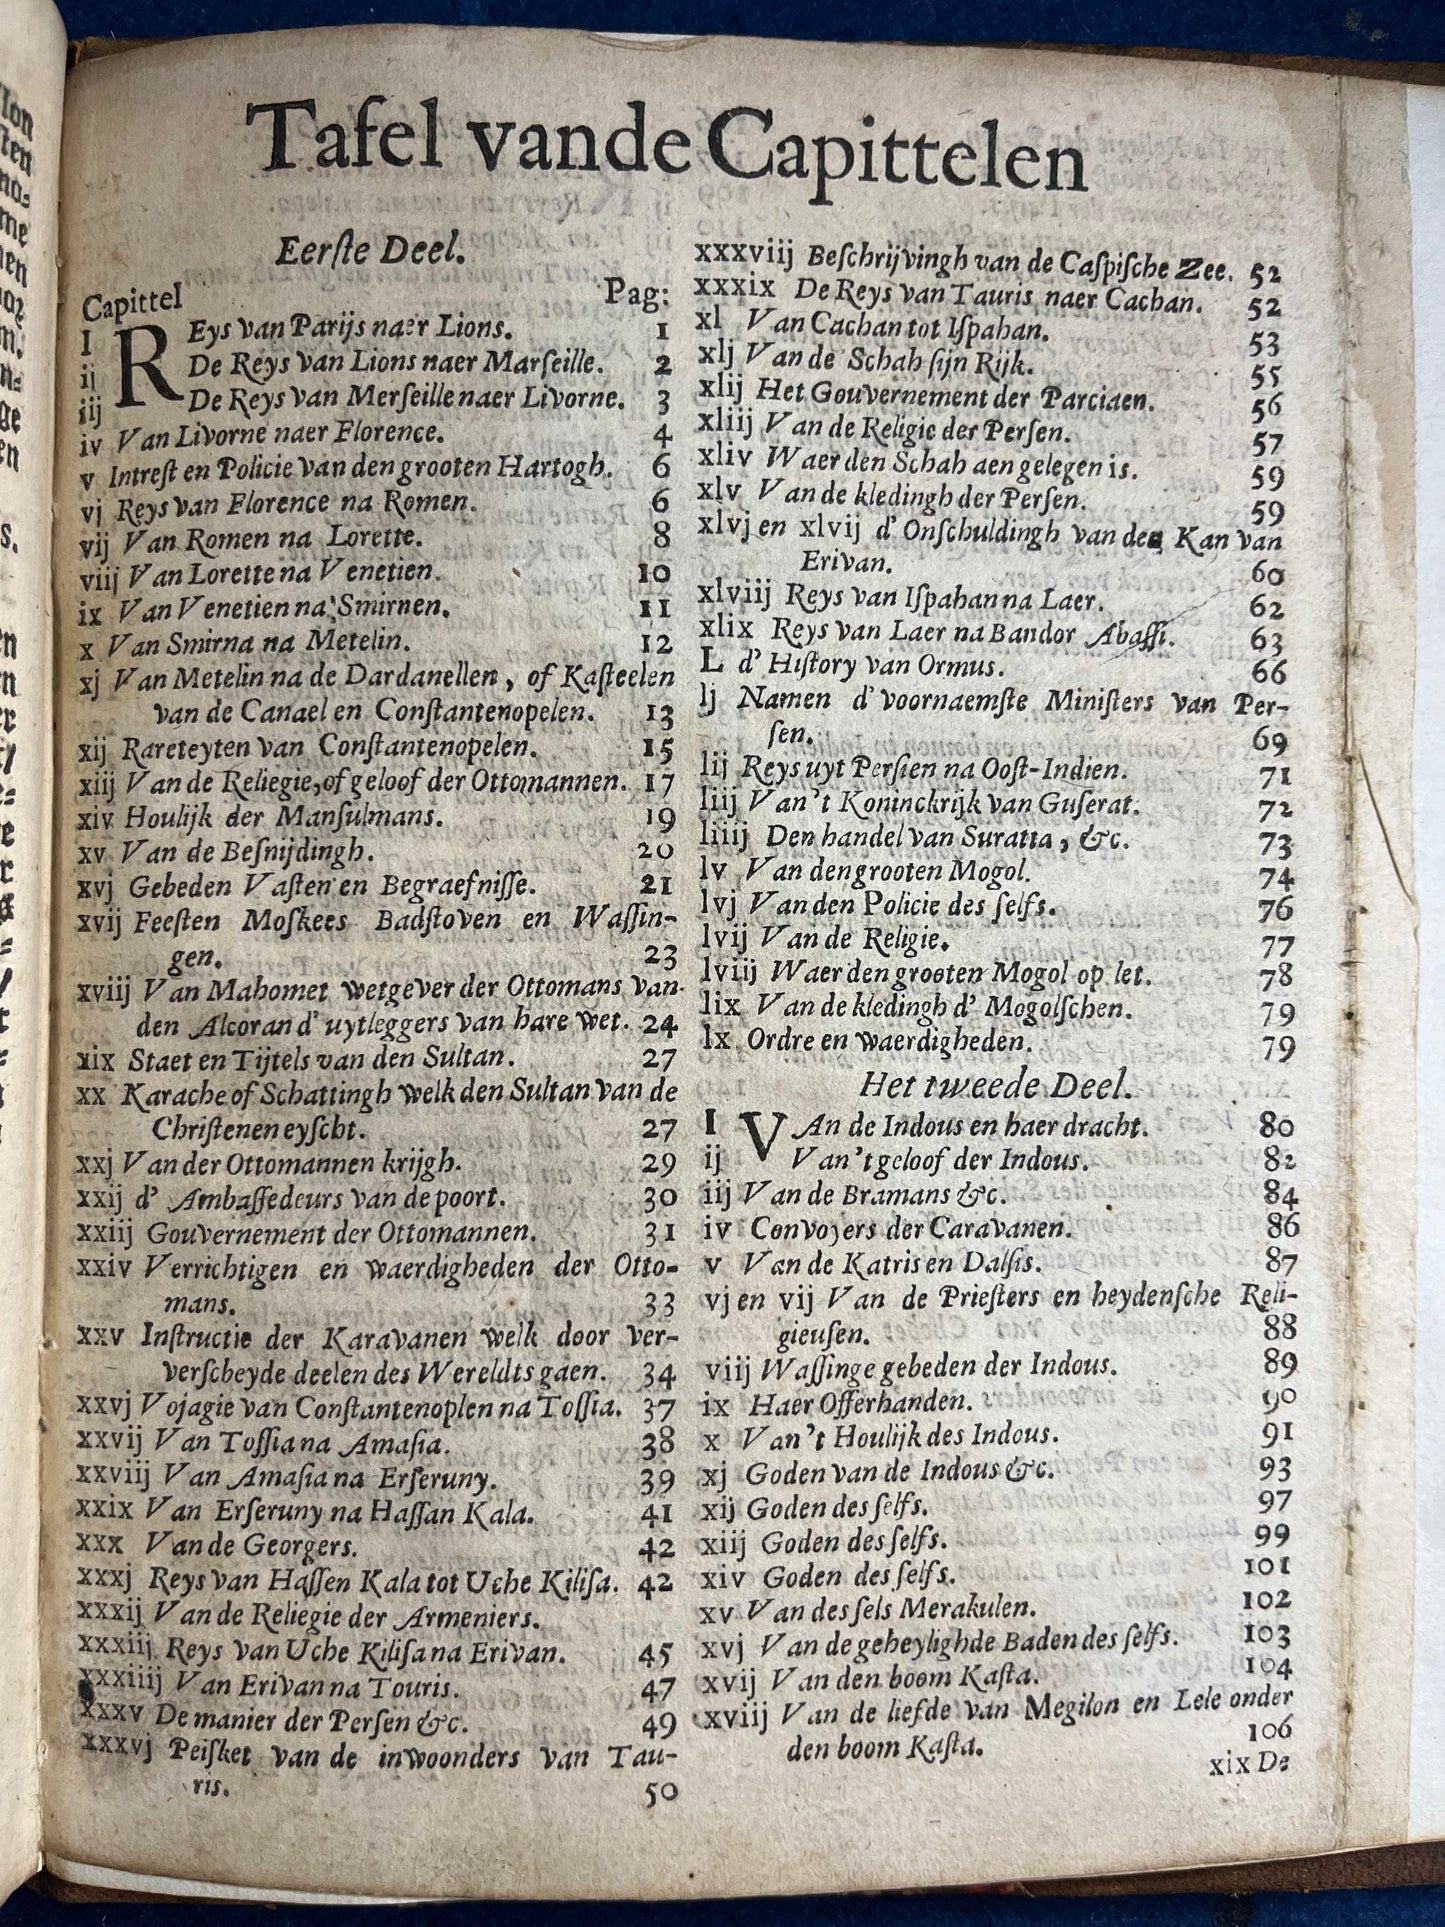 Tafel vande Capittelen
Eerſte Deel.
Capittel Pag:
I REys van Parijs naer Lions. 1
ij De Reys van Lions naer Marſeille. 2
iij De Reys van Merſeille naer Livorne. 3
iv Van Livorne naer Florence. 4
v Intreſt en Policie van den grooten Hartogh. 6
vj Reys van Florence na Romen. 6
vij Van Romen na Lorette. 8
viij Van Lorette na Venetien. 10
ix Van Venetien na Smirnen. 11
x Van Smirna na Metelin. 12
xj Van Metelin na de Dardanellen, of Kaſteelen
van de Canael en Conſtantenopelen. 13
xij Rareteyten van Conſtantenopelen. 15
xiij Van de Reliegie, of geloof der Ottomannen. 17
xiv Houlijk der Manſulmans. 19
xv Van de Beſnijdingh. 20
xvj Gebeden Vaſten en Begraefniſſe. 21
xvij Feeſten Moſkees Badſtoven en Waſſin-
gen. 23
xviij Van Mahomet wetgever der Ottomans van
den Alcoran d' uytleggers van hare wet. 24
xix Staet en Tijtels van den Sultan. 27
xx Karache of Schattingh welk den Sultan van de
Chriſtenen eyſcht. 27
xxj Van der Ottomannen krijgh. 29
xxij d' Ambaſſedeurs van de poort. 30
xxiij Gouvernement der Ottomannen. 31
xxiv Verrichtigen en waerdigheden der Otto-
mans. 33
xxv Inſtructie der Karavanen welk door ver-
verſcheyde deelen des Wereldts gaen. 34
xxvj Vojagie van Conſtantenoplen na Toſſia. 37
xxvij Van Toſſia na Amaſia. 38
xxviij Van Amaſia na Erſeruny. 39
xxix Van Erſeruny na Haſſan Kala. 41
xxx Van de Georgers. 42
xxxj Reys van Haſſen Kala tot Uche Kiliſa. 42
xxxij Van de Reliegie der Armeniers.
xxxiij Reys van Uche Kiliſa na Erivan. 45
xxxiiij Van Erivan na Touris. 47
xxxv De manier der Perſen &c. 49
xxxvj Peiſket van de inwoonders van Tau-
ris. 50
xxxviij Beſchrijvingh van de Caſpiſche Zee. 52
xxxix De Reys van Tauris naer Cachan. 52
xl Van Cachan tot Iſpahan. 53
xlj Van de Schah ſijn Rijk. 55
xlij Het Gouvernement der Parciaen. 56
xliij Van de Religie der Perſen. 57
xliv Waer den Schah aen gelegen is. 59
xlv Van de kledingh der Perſen. 59
xlvj en xlvij d' Onſchuldingh van den Kan van
Erivan. 60
xlviij Reys van Iſpahan na Laer. 62
xlix Reys van Laer na Bandor Abaſſi. 63
L d' Hiſtory van Ormus. 66
lj Namen d' voornaemſte Miniſters van Per-
ſen. 69
lij Reys uyt Perſien na Ooſt-Indien. 71
liij Van't Koninckrijk van Guſerat. 72
liiij Den handel van Suratta, &c. 73
lv Van den grooten Mogol. 74
lvj Van den Policie des ſelfs. 76
lvij Van de Religie. 77
lviij Waer den grooten Mogol op let. 78
lix Van de kledingh d' Mogolſchen. 79
lx Ordre en waerdigheden. 79
Het tweede Deel.
I VAn de Indous en haer dracht. 80
ij Van't geloof der Indous. 82
iij Van de Bramans &c. 84
iv Convoyers der Caravanen. 86
v Van de Katris en Dalſis. 87
vj en vij Van de Prieſters en heydenſche Reli-
gieuſen. 88
viij Waſſinge gebeden der Indous. 89
ix Haer Offerhanden. 90
x Van't Houlijk des Indous. 91
xj Goden van de Indous &c. 93
xij Goden des ſelfs. 97
xiij Goden des ſelfs. 99
xiv Goden des ſelfs. 101
xv Van des ſels Merakulen. 102
xvj Van de geheylighde Baden des ſelfs. 103
xvij Van den boom Kaſta. 104
xviij Van de liefde van Megilon en Lele onder
den boom Kaſta. 106
xix De